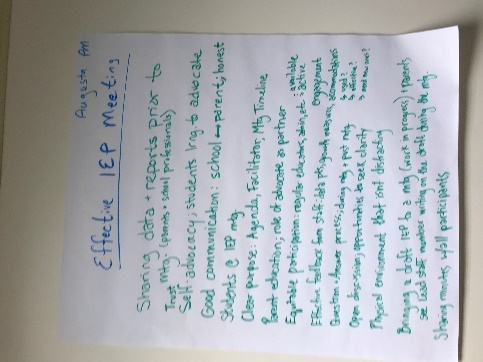 Augusta AM
Effective IEP Meeting
Sharing data + reports prior to
mtg (parents + school professionals)
Trust
Self-advocacy; students lrng to advocate
Good communication: school ↔ parent; honest
Students @ IEP mtg
Clear purpose: Agenda, Facilitator, Mtg Timeline
Parent education; role of advocate as partner
Equitable participation: regular educators, admin, etc.
: available
: active
engagement
Effective feedback from staff: data pts, growth measures, accommodations
Question/Answer process; during mtg + post mtg
Open discussion, opportunities to seek clarity
Physical environment that isn't distracting
Bringing a draft IEP to a mtg (work in progress); parents
see lead staff members writing on the draft during the mtg.
Sharing minutes w/all participants